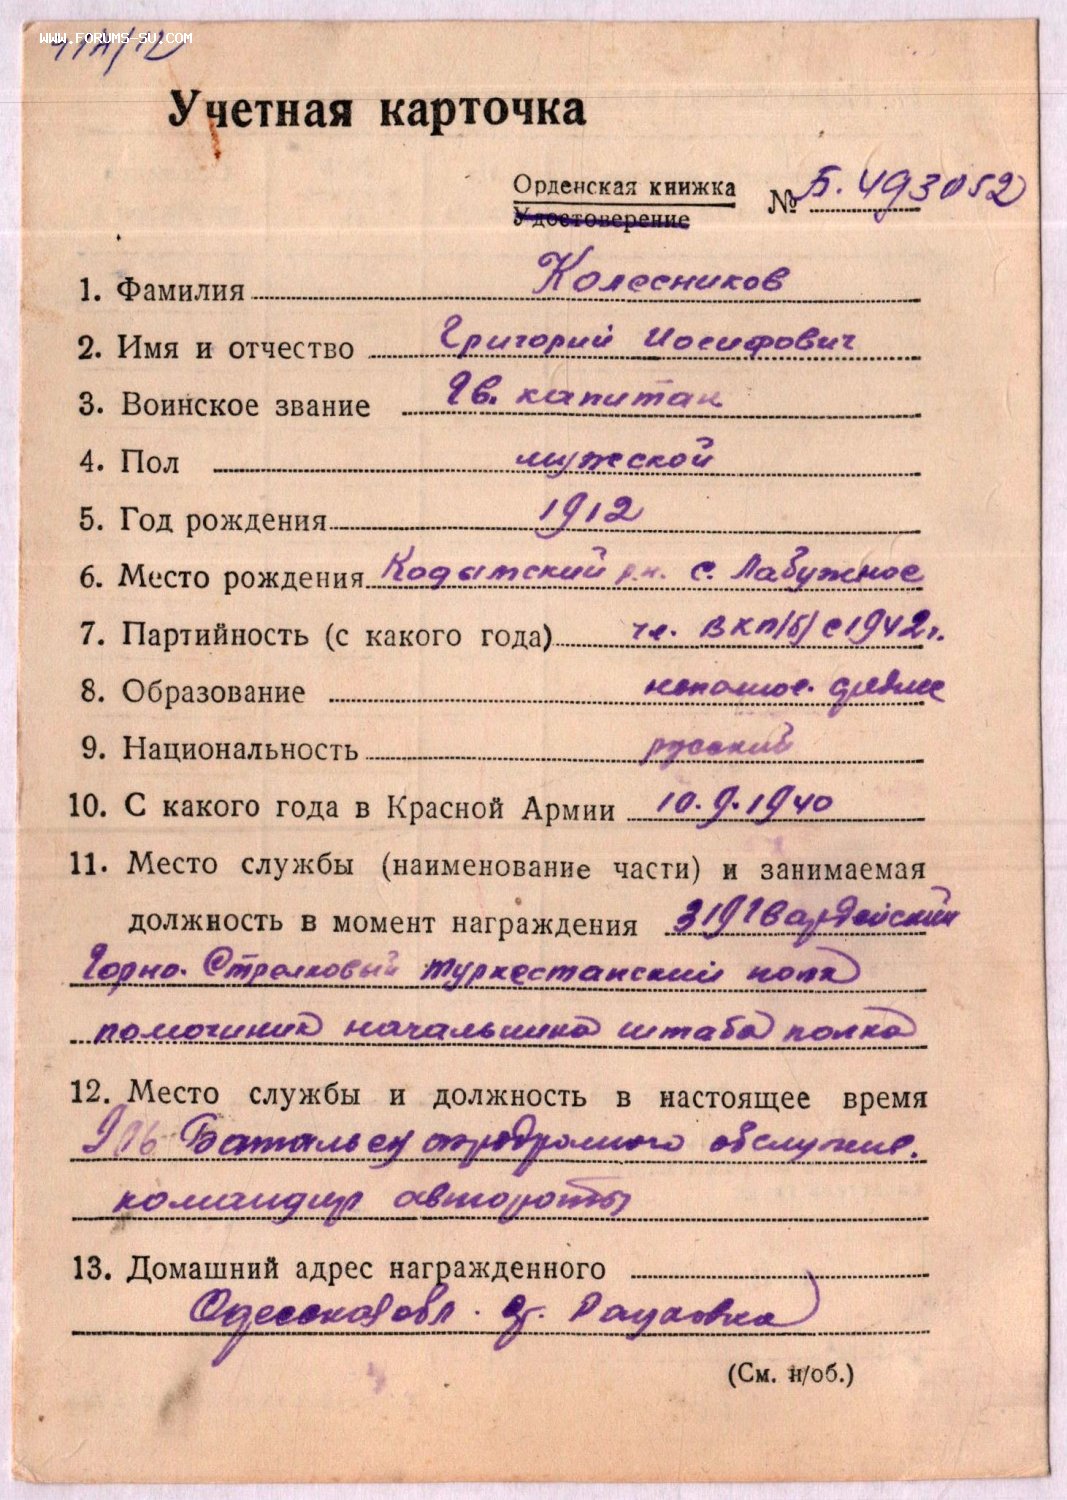 www.forums-su.com
Учетная карточка
Орденская книжка № Б. 493052
Удостоверение
1. Фамилия Колесников
2. Имя и отчество Григорий Иосифович
3. Воинское звание Гв. капитан
4. Пол мужской
5. Год рождения 1912
6. Место рождения Кодымский р.н. с. Лабужное
7. Партийность (с какого года) чл. ВКП/б/ с 1942г.
8. Образование
9. Национальность русский
10. С какого года в Красной Армии 10.9.1940
11. Место службы (наименование части) и занимаемая
должность в момент награждения 319 Гвардейский
Горно. Стрелковый Туркестанский полк
помочиник начальника штаба полка
12. Место службы и должность в настоящее время
Батальен аэродромного обслужив.
командир автороты
13. Домашний адрес награжденного
Одесская обл.
(См. н/об.)